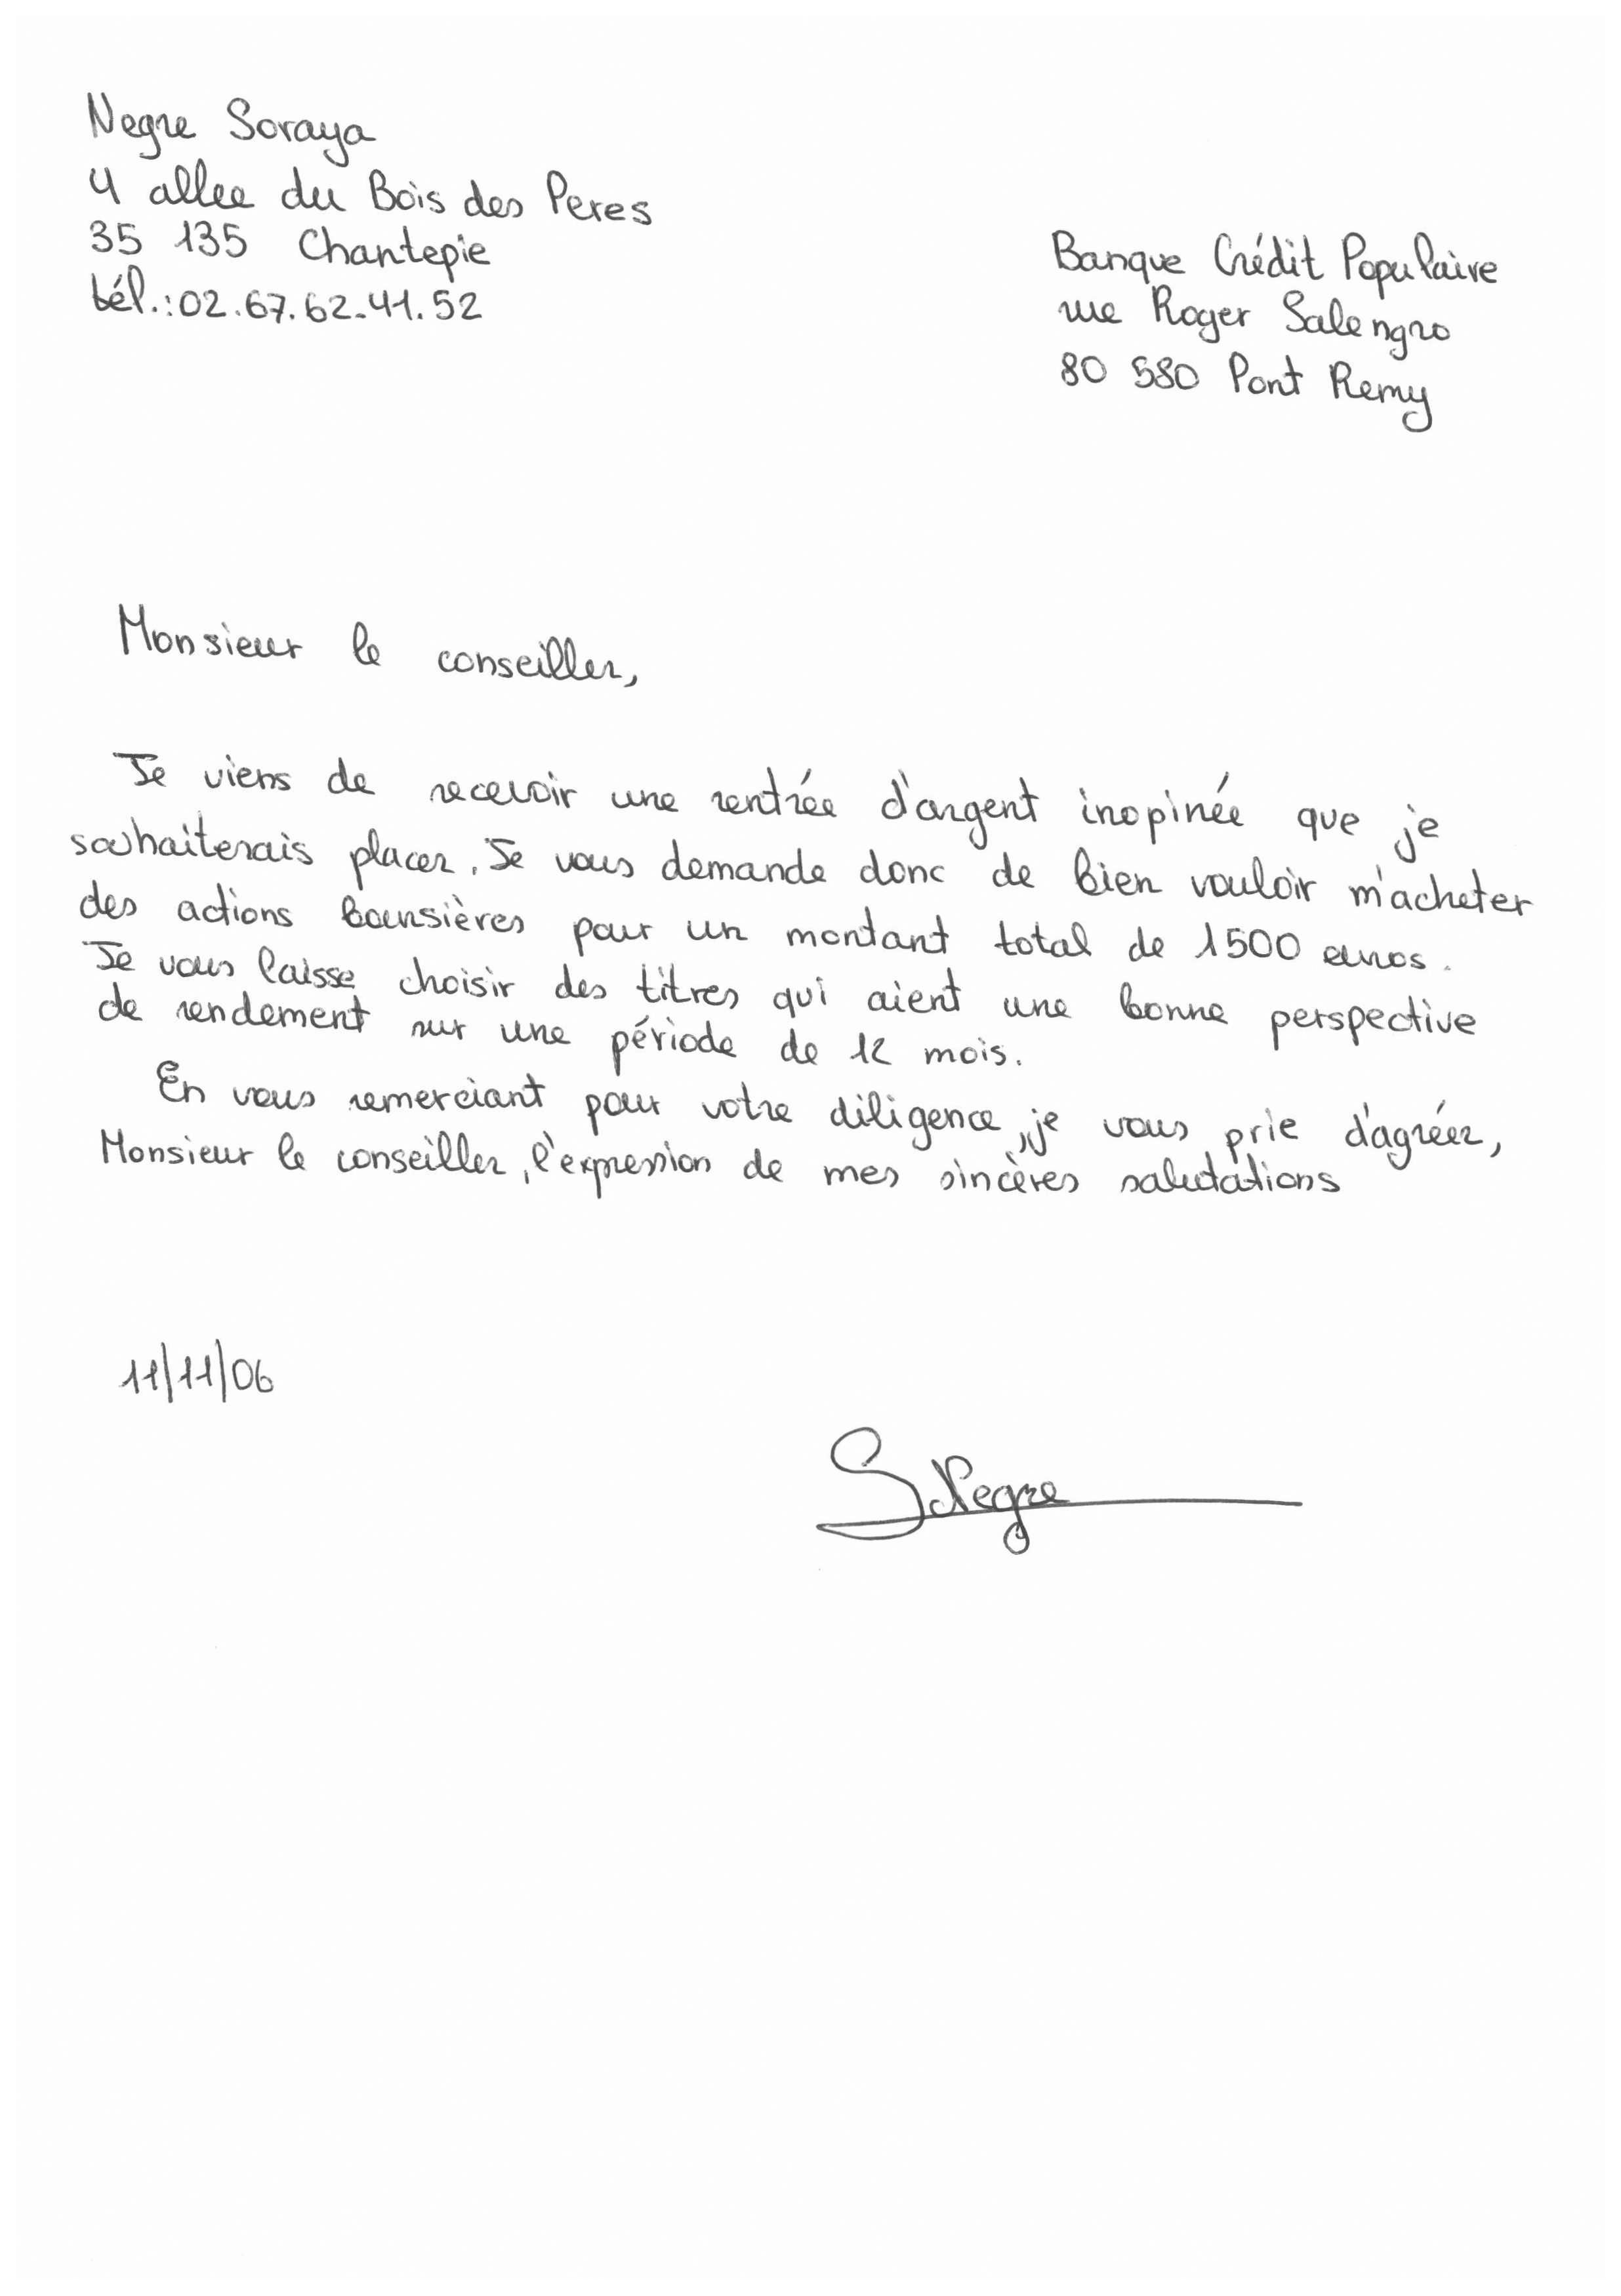 Negre Soraya
4 allee du Bois des Peres
35 135 Chantepie
tél.: 02.67.62.41.52
Banque Crédit Populaire
rue Roger Salengro
80 580 Pont Remy
Monsieur le conseiller,
Je viens de recevoir une rentrée d'argent inopinée que je
souhaiterais placer. Je vous demande donc de bien vouloir m'acheter
des actions boursières pour un montant total de 1500 euros.
Je vous laisse choisir des titres qui aient une bonne perspective
de rendement sur une période de 12 mois.
En vous remerciant pour votre diligence, je vous prie d'agréer,
Monsieur le conseiller, l'expression de mes sincères salutations
11/11/06
SNegre